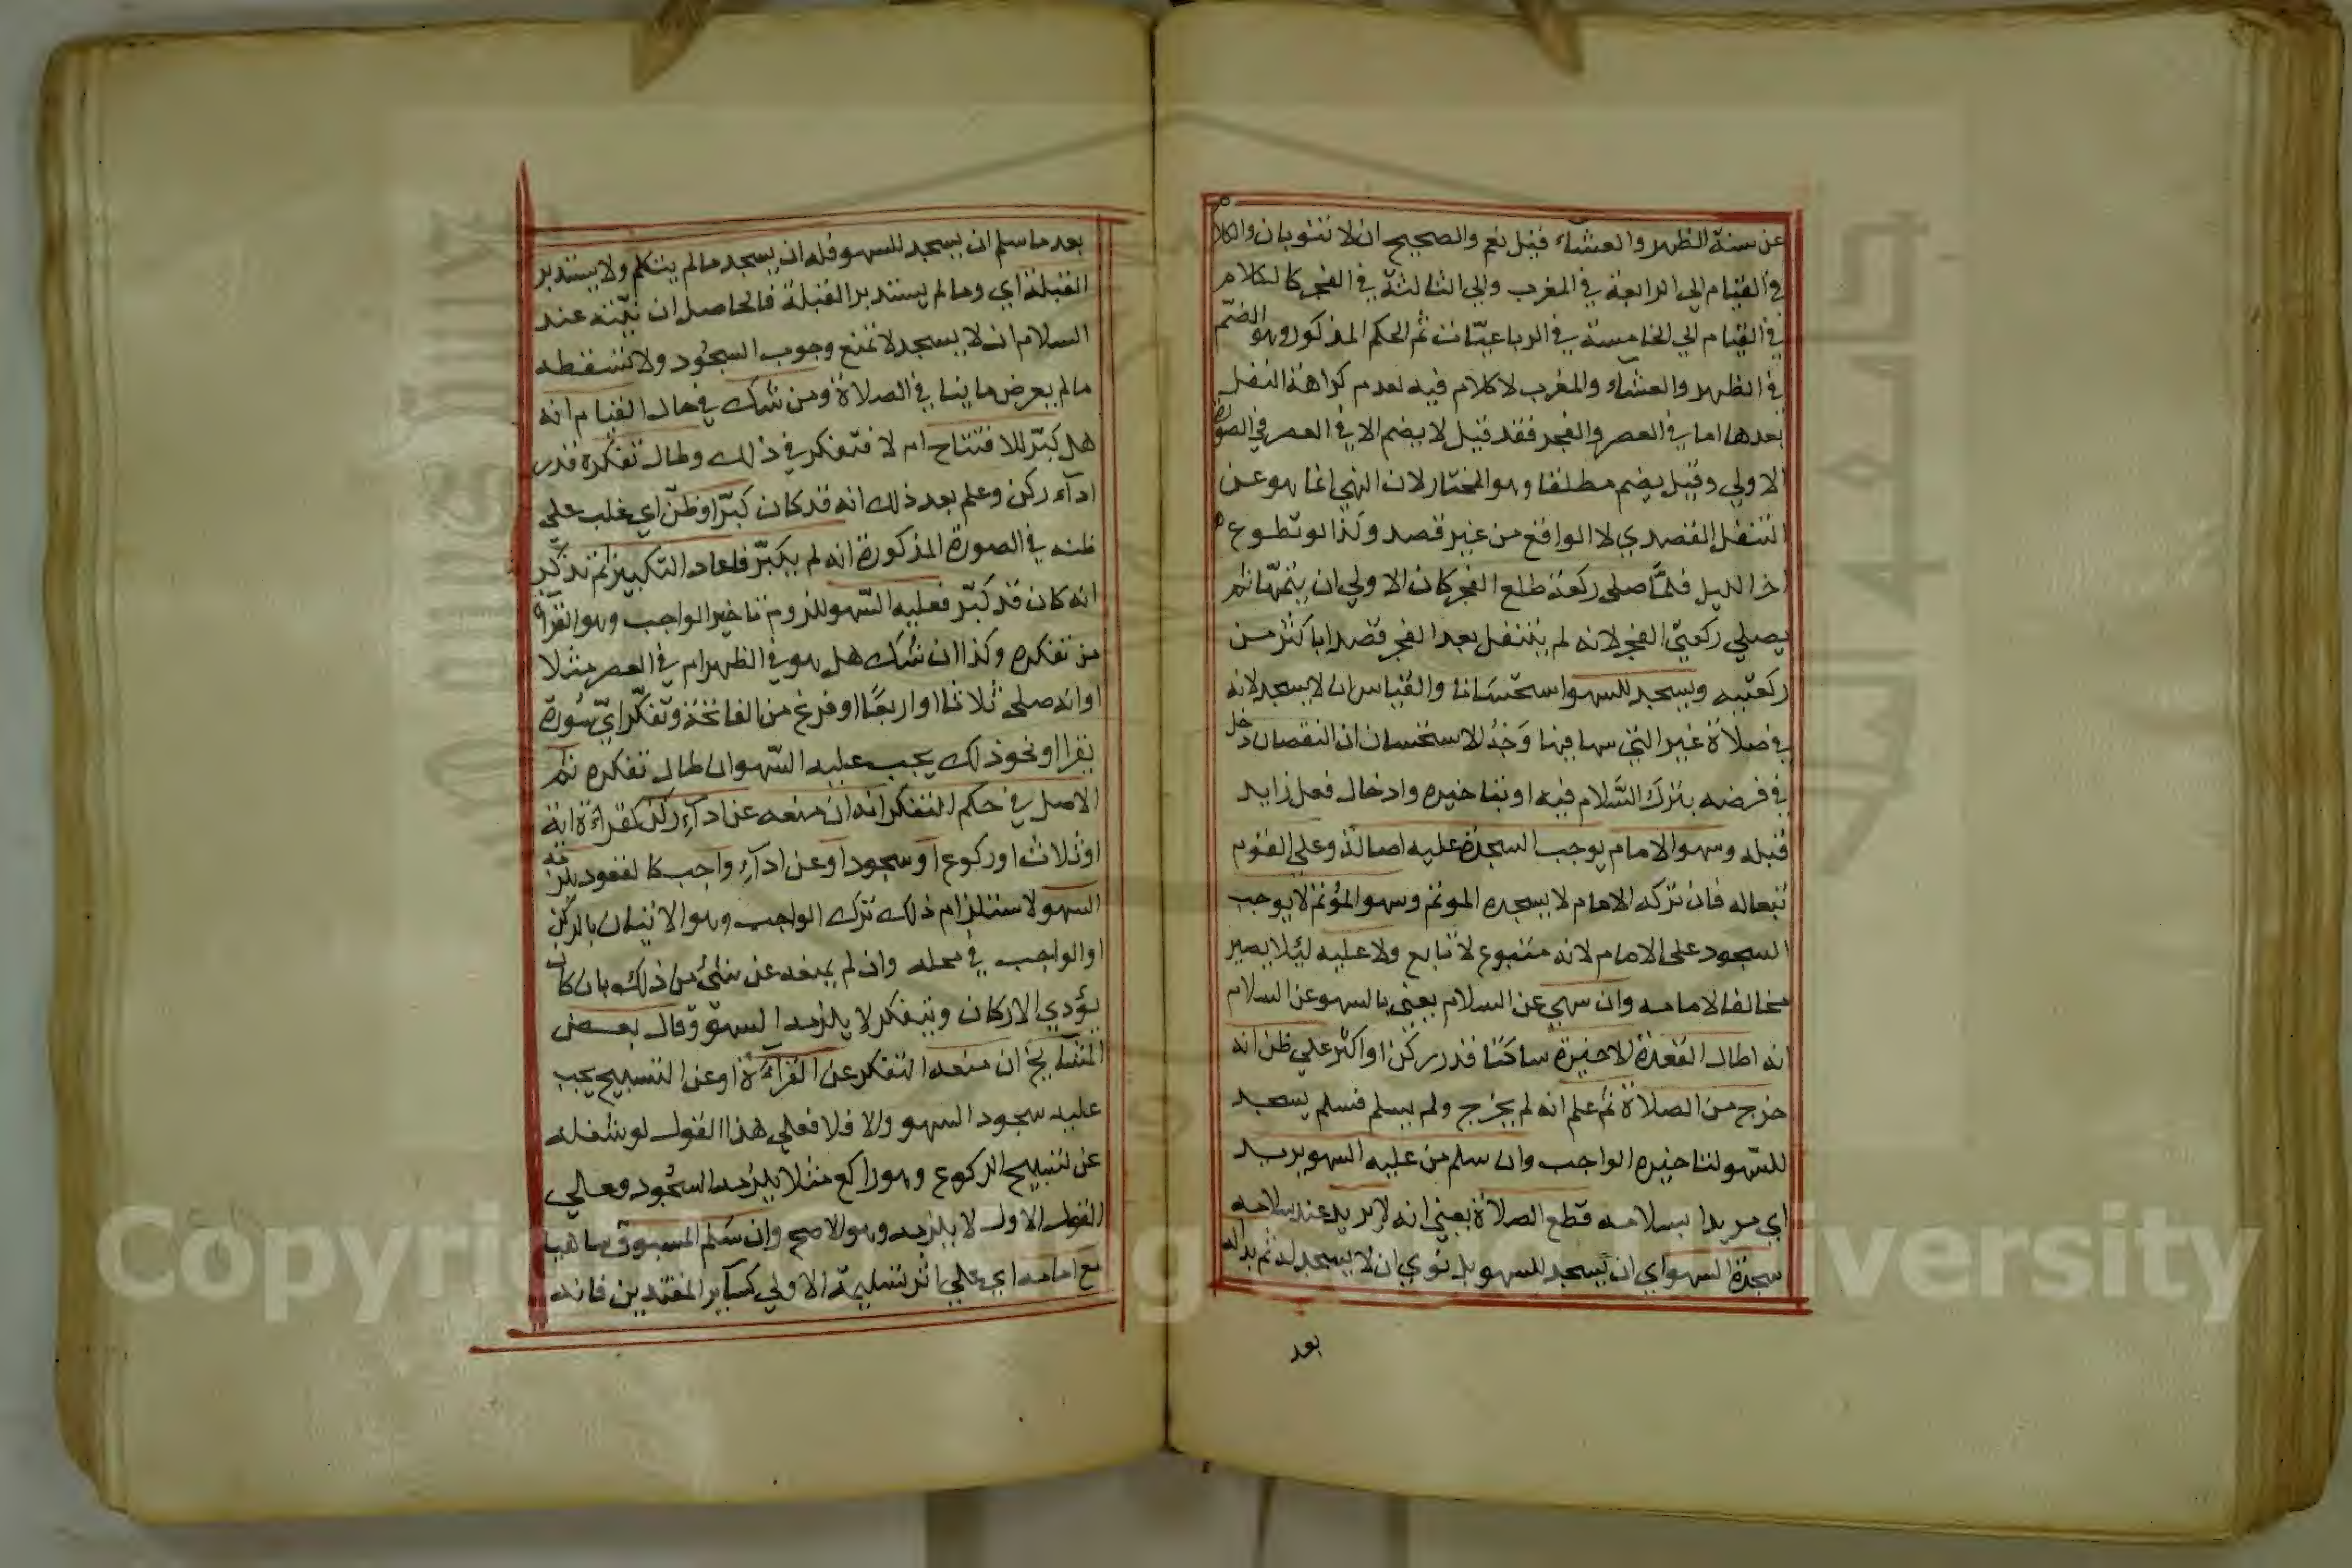 عن سنة الظهر والعشاء قيل نعم والصحيح ان لا تنوبان والكلام
في القيام الي الرابعة في المغرب والي الثالثة في الفجر كالكلام
في القيام الي الخامسة في الرباعيات ثم الحكم المذكور وهو الضم
في الظهر والعشاء والمغرب لا كلام فيه لعدم كراهة النفل
بعدها اما في العصر والفجر فقد قيل لا يضم الا في العصر في الصورة
الاولي وقيل يضم مطلقا وهو المختار لان النهي انما هو عن
التنفل القصدي لا الواقع من غير قصد وكذا لو تطوع
اخر الليل فلما صلى ركعة طلع الفجر كان الاولي ان يتمها ثم
يصلي ركعتي الفجر لانه لم يتنفل بعد الفجر قصدا باكثر من
ركعتيه ويسجد للسهو استحسانا والقياس ان لا يسجد لانه
في صلاة غير التي سها فيها وجه الاستحسان ان النقصان دخل
في فرضه بترك السلام فيه او بتاخيره وادخال فعل زايد
قبله وسهو الامام يوجب السجدة عليه اصالة وعلي القوم
تبعا له فان تركه الامام لا يسجده الموتم وسهو المؤتم لا يوجب
السجود على الامام لانه متبوع لا تابع ولا عليه ليلا يصير
مخالفا لامامه وان سهي عن السلام يعني بالسهو عن السلام
انه اطال القعدة الاخيرة ساكتا قدر ركن او اكثر علي ظن انه
خرج من الصلاة ثم علم انه لم يخرج ولم يسلم فسلم يسجد
للسهو لتاخيره الواجب وان سلم من عليه السهو يريد
اي مريدا بسلامه قطع الصلاة يعني انه لا يريد عند سلامه
سجدة السهو اي ان يسجد للسهو بل نوي ان لا يسجد له ثم بدا له
بعد
بعد ما سلم ان يسجد للسهو فله ان يسجد ما لم يتكلم ولا يستدبر
القبلة اي وما لم يستدبر القبلة فالحاصل ان نيته عند
السلام ان لا يسجد لا تمنع وجوب السجود ولا تسقطه
ما لم يعرض ما ينا في الصلاة ومن شك في حال القيام انه
هل كبر للافتتاح ام لا فتفكر في ذلك وطال تفكره قدر
اداء ركن وعلم بعد ذلك انه قد كان كبر او ظن اي غلب علي
ظنه في الصورة المذكورة انه لم يكبر فاعاد التكبير ثم تذكر
انه كان قد كبر فعليه السهو للزوم تاخير الواجب وهو القرآة
من تفكره وكذا ان شك هل هو في الظهر ام في العصر مثلا
او انه صلى ثلاثا او اربعا او فرغ من الفاتحة وتفكر اي سورة
يقرا او نحو ذلك يجب عليه السهو ان طال تفكره ثم
الاصل في حكم التفكر انه ان منعه عن اداء ركن كقراءة اية
او ثلاث او ركوع او سجود او عن اداء واجب كالقعود يلزمه
السهو لاستلزام ذلك ترك الواجب وهو الاتيان بالركن
او الواجب في محله وان لم يمنعه عن شئ من ذلك بان كان
يؤدي الاركان ويتفكر لا يلزمه السهو وقال بعض
المشايخ ان منعه التفكر عن القراءة او عن التسبيح يجب
عليه سجود السهو والا فلا فعلي هذا القول لو شغله
عن تسبيح الركوع وهو راكع مثلا يلزمه السجود وعلي
القول الاول لا يلزمه وهو الاصح وان سلم المسبوق ساهيا
مع امامه اي علي اثر تسليمة الاولي كساير المقتدين فانه
Copyright © King Saud University
جامعة الملك سعود